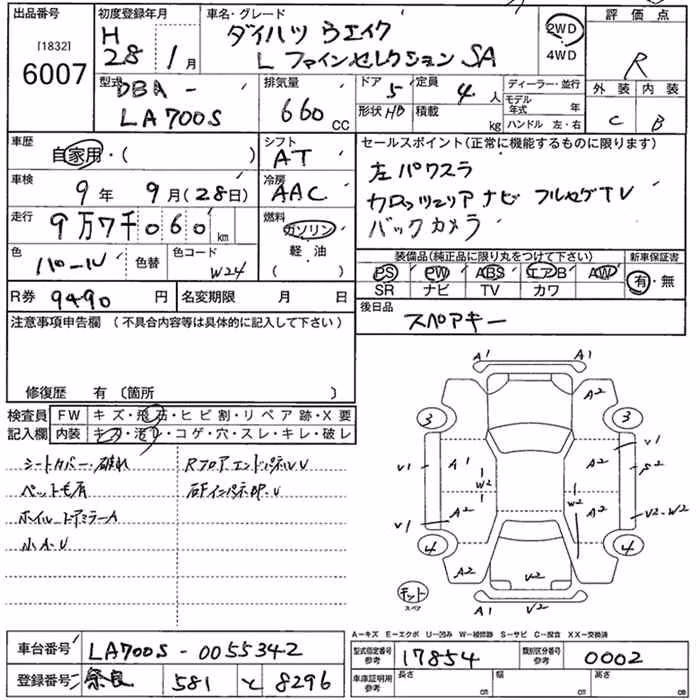 出品番号
[1832]
6007
初度登録年月
H
28 年 1 月
車名・グレード
ダイハツ ウエイク
L ファインセレクション SA
2WD
4WD
評価点
R
外装 内装
C B
型式 DBA -
LA700S
排気量
660 CC
ドア 5
定員 4 人
形状 HB
積載 kg
ディーラー・並行
モデル年式 年
ハンドル 左・右
車歴
自家用・( )
シフト
AT
車検
9 年 9 月 (28日)
冷房
AAC
走行
9万7千060 km
燃料
ガソリン
軽・油
( )
色
パール
色替
色コード
W24
R券 9490 円
名変期限 月 日
セールスポイント(正常に機能するものに限ります)
左パワスラ
カロッツェリア ナビ フルセグTV
バックカメラ
装備品(純正品に限り丸をつけて下さい)
新車保証書
PS PW ABS エアB AW
SR ナビ TV カワ
有・無
後日品
スペアキー
注意事項申告欄 (不具合内容等は具体的に記入して下さい)
修復歴 有 〔箇所 〕
検査員
記入欄
FW キズ・飛石・ヒビ割・リペア跡・X要
内装 キズ・汚レ・コゲ・穴・スレ・キレ・破レ
シートカバー・破れ
ペット毛有
ホイルドアミラーA
小A・U
Rフロアエンドパネル U
右FインパネBP・U
A1 A1
A2
3 3
V1 A1 W2 A2 V1 S2
V1 A2 W2 A2 V2-W2
4 4
A2 V2 A2
キット
スペア
A1 V2
A-キズ E-エクボ U-凹み W-補修跡 S-サビ C-腐食 XX-交換済
車台番号 LA700S - 0055342
登録番号 奈良 581 と 8296
型式指定番号
参考
17854
類別区分番号
参考
0002
車庫証明用
参考
長さ cm
幅 cm
高さ cm